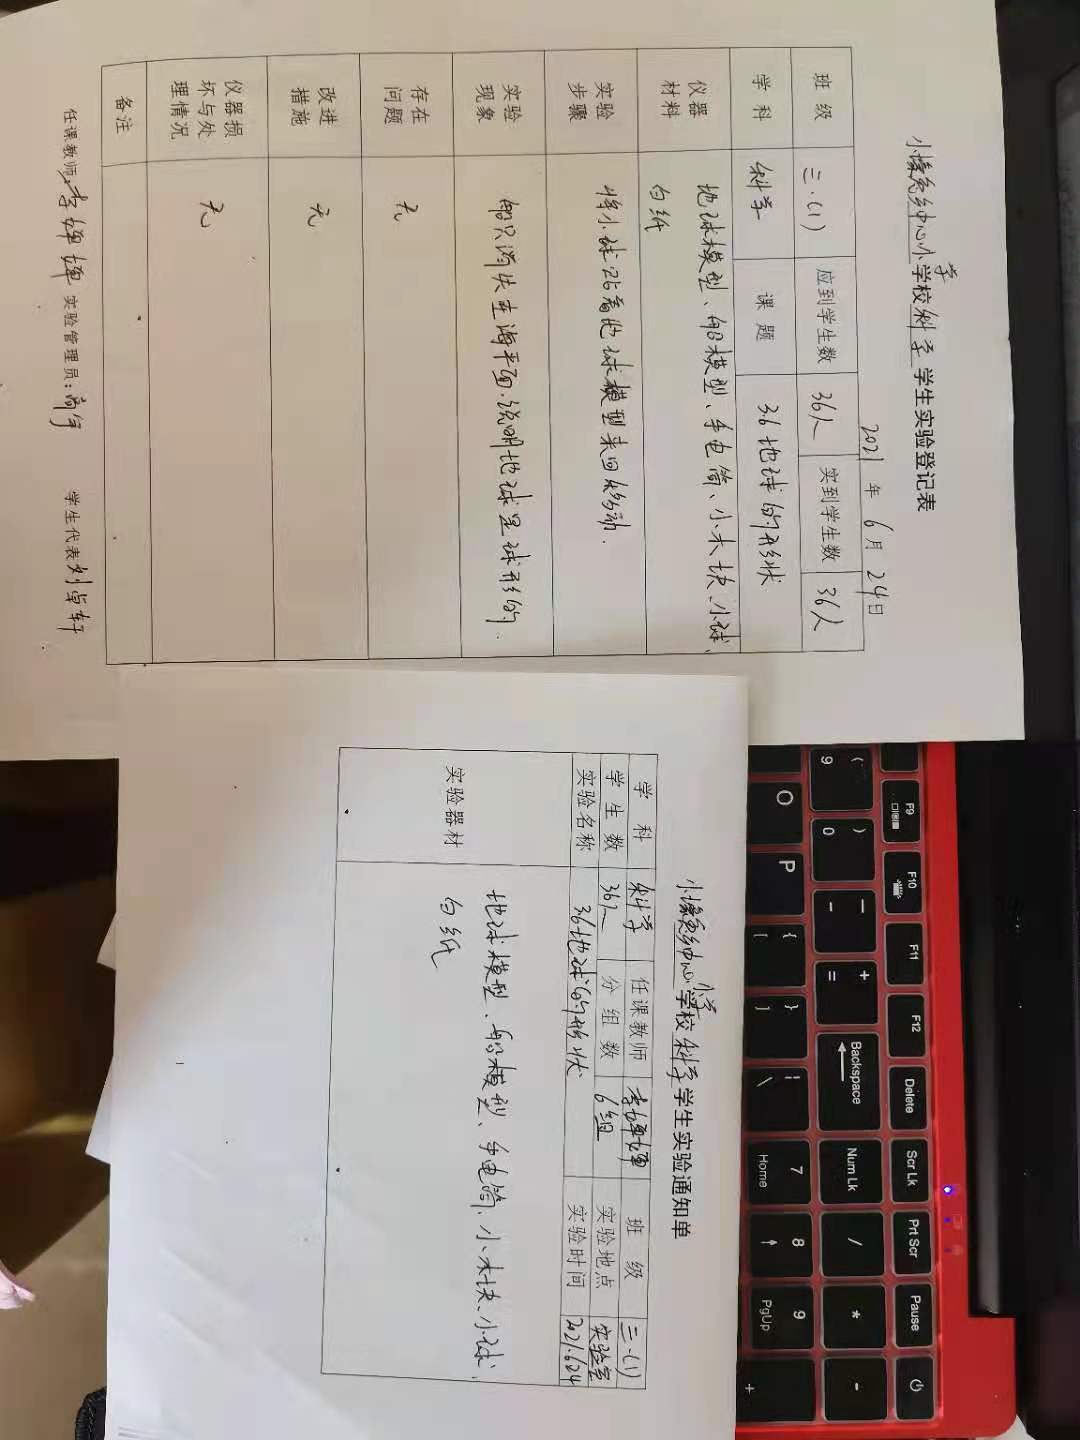 小壕兔乡中心小学校科学学生实验登记表
2021年6月24日
班级 三.(1) 应到学生数 36人 实到学生数 36人
学科 科学 课题 3.6地球的形状
仪器材料 地球模型、船模型、手电筒、小木块、小球、
白纸
实验步骤 将小球沿着地球模型来回移动.
实验现象 船只消失在海平面.说明地球是球形的.
存在问题 无
改进措施 无
仪器损坏与处理情况 无
备注
任课教师:李婵婵 实验管理员: 学生代表刘卓轩
小壕兔乡中心小学校科学学生实验通知单
学科 科学 任课教师 李婵婵 班级 三.(1)
学生数 36人 分组数 6组 实验地点 实验室
实验名称 3.6地球的形状 实验时间 2021.6.24
实验器材 地球模型、船模型、手电筒、小木块、小球、
白纸
F9
F10
F11
F12
Delete
Scr Lk
Prt Scr
Pause
( 9
) 0
_ -
+ =
Backspace
Num Lk
/
*
-
O
P
{ [
} ]
| \
7 Home
8
9 PgUp
+